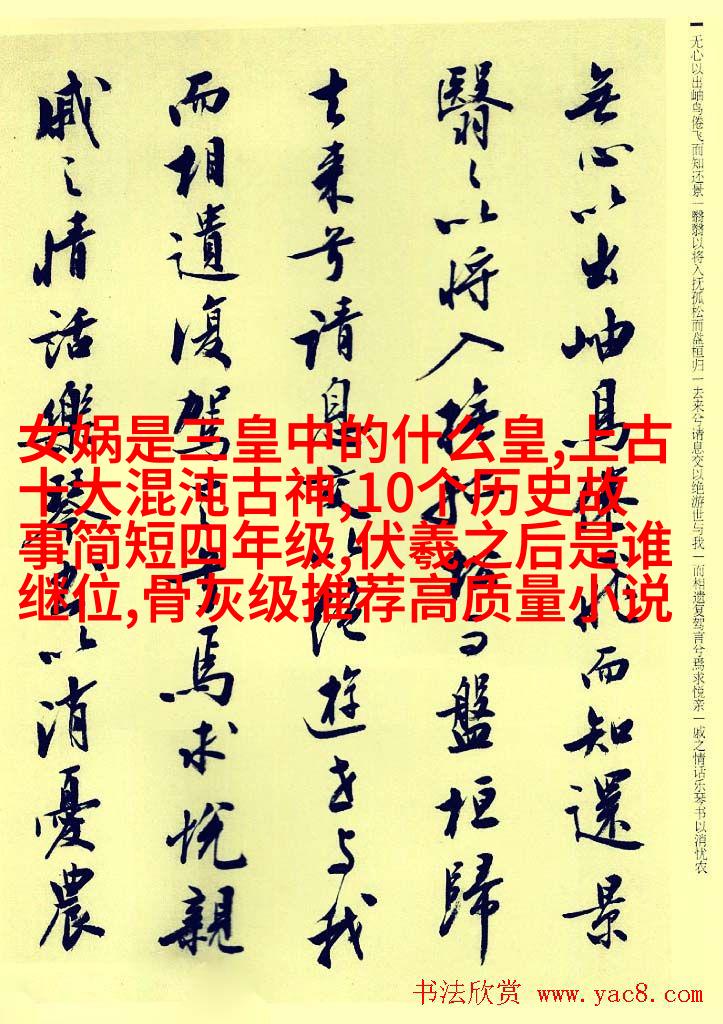 无心以出岫鸟倦飞而知还景一翳翳以将入抚孤松而盘桓归一去来兮请息交以绝游世与我一而相遗复驾言兮焉求悦亲一戚之情话乐琴书以消忧农
無心以出岫鳥倦飛而知還景
翳〻以将入撫孤松而盤桓歸
去来兮請息交以絕遊世与我
而相遺復駕言兮焉求悅親
戚之情話樂琴書以消憂農
女娲是三皇中的什么皇,上古
十大混沌古神,10个历史故
事简短四年级,伏羲之后是谁
继位,骨灰级推荐高质量小说
书法欣赏 www.yac8.com